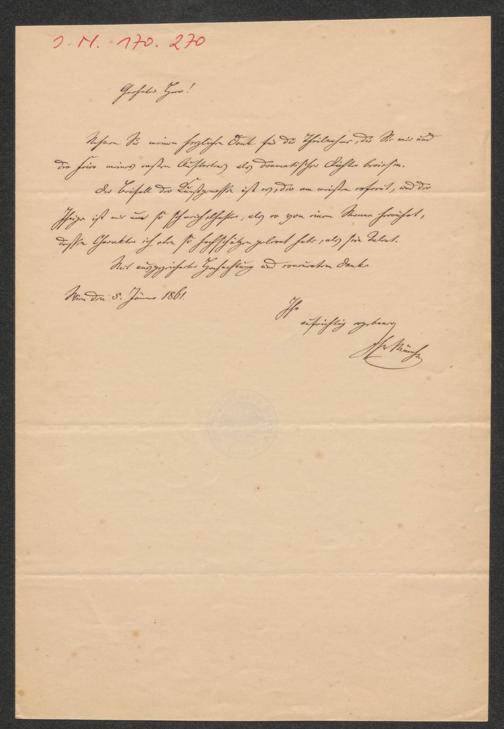 J. N. 170.270
Geehrter Herr!
Nehmen Sie meinen herzlichen Dank für die Theilnahme, die Sie mir und
der Feier meines ersten Auftretens als dramatischer Dichter bewiesen.
Der Beifall der Kunstgenossen ist es, der am meisten erfreut, und der
Ihrige ist mir um so schmeichelhafter, als er von einem Manne herrührt,
dessen Charakter ich eben so hochschätzen gelernt habe, als sein Talent.
Mit ausgezeichneter Hochachtung und erneuertem Danke
Wien den 8. Jänner 1861.
Ihr
aufrichtig ergebener